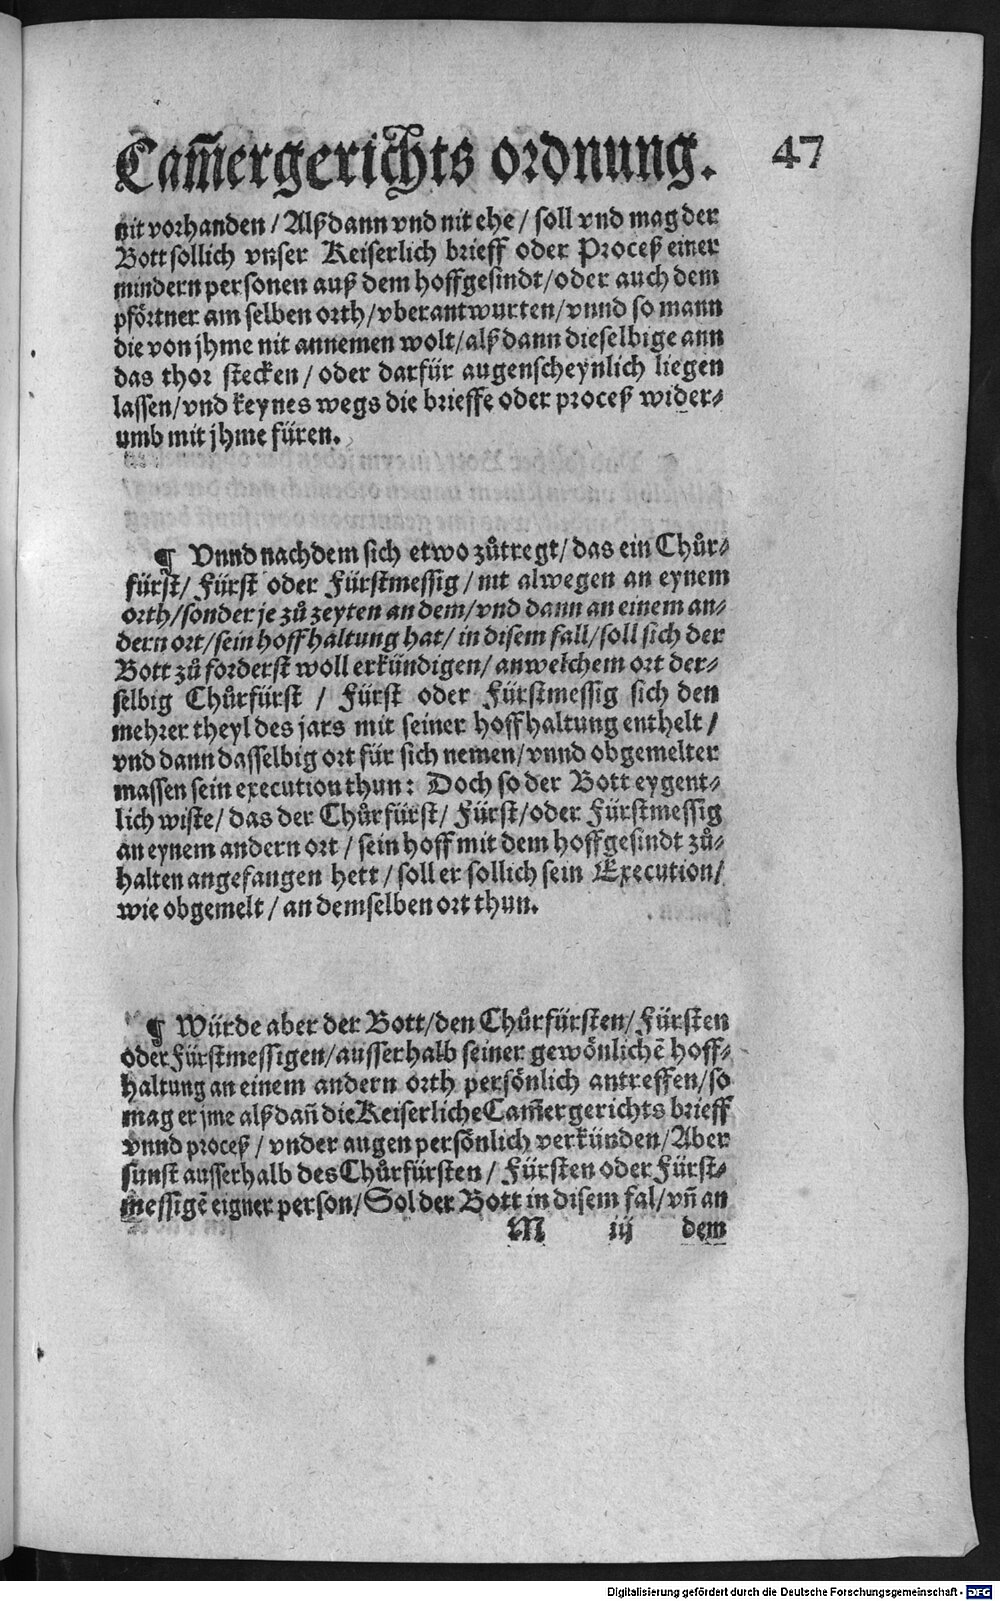 Cam̄ergerichts ordnung. 47
nit vorhanden / Alßdann vnd nit ehe / soll vnd mag der
Bott sollich vnser Keiserlich brieff oder Proceß einer
mindern personen auß dem hoffgesindt / oder auch dem
pförtner am selben orth / vberantwurten / vnnd so mann
die von jhme nit annemen wolt / alß dann dieselbige ann
das thor stecken / oder darfür augenscheynlich liegen
lassen / vnd keynes wegs die brieffe oder proceß wider⸗
umb mit jhme füren.
¶ Vnnd nachdem sich etwo zůtregt / das ein Chůr⸗
fürst / Fürst oder Fürstmessig / nit alwegen an eynem
orth / sonder je zů zeyten an dem / vnd dann an einem an⸗
dern ort / sein hoffhaltung hat / in disem fall / soll sich der
Bott zů forderst woll erkündigen / an welchem ort der⸗
selbig Chůrfürst / Fürst oder Fürstmessig sich den
mehrer theyl des jars mit seiner hoffhaltung enthelt /
vnd dann dasselbig ort für sich nemen / vnnd obgemelter
massen sein execution thun: Doch so der Bott eygent⸗
lich wiste / das der Chůrfürst / Fürst / oder Fürstmessig
an eynem andern ort / sein hoff mit dem hoffgesindt zů⸗
halten angefangen hett / soll er sollich sein Execution /
wie obgemelt / an demselben ort thun.
¶ Würde aber der Bott / den Chůrfürsten / Fürsten
oder Fürstmessigen / ausserhalb seiner gewönlichē hoff⸗
haltung an einem andern orth persönlich antreffen / so
mag er jme alß dañ die Keiserliche Cam̄ergerichts brieff
vnnd proceß / vnder augen persönlich verkünden / Aber
sunst ausserhalb des Chůrfürsten / Fürsten oder Fürst⸗
messigē eigner person / Sol der Bott in disem fal / vñ an
M iij dem
Digitalisierung gefördert durch die Deutsche Forschungsgemeinschaft - DFG